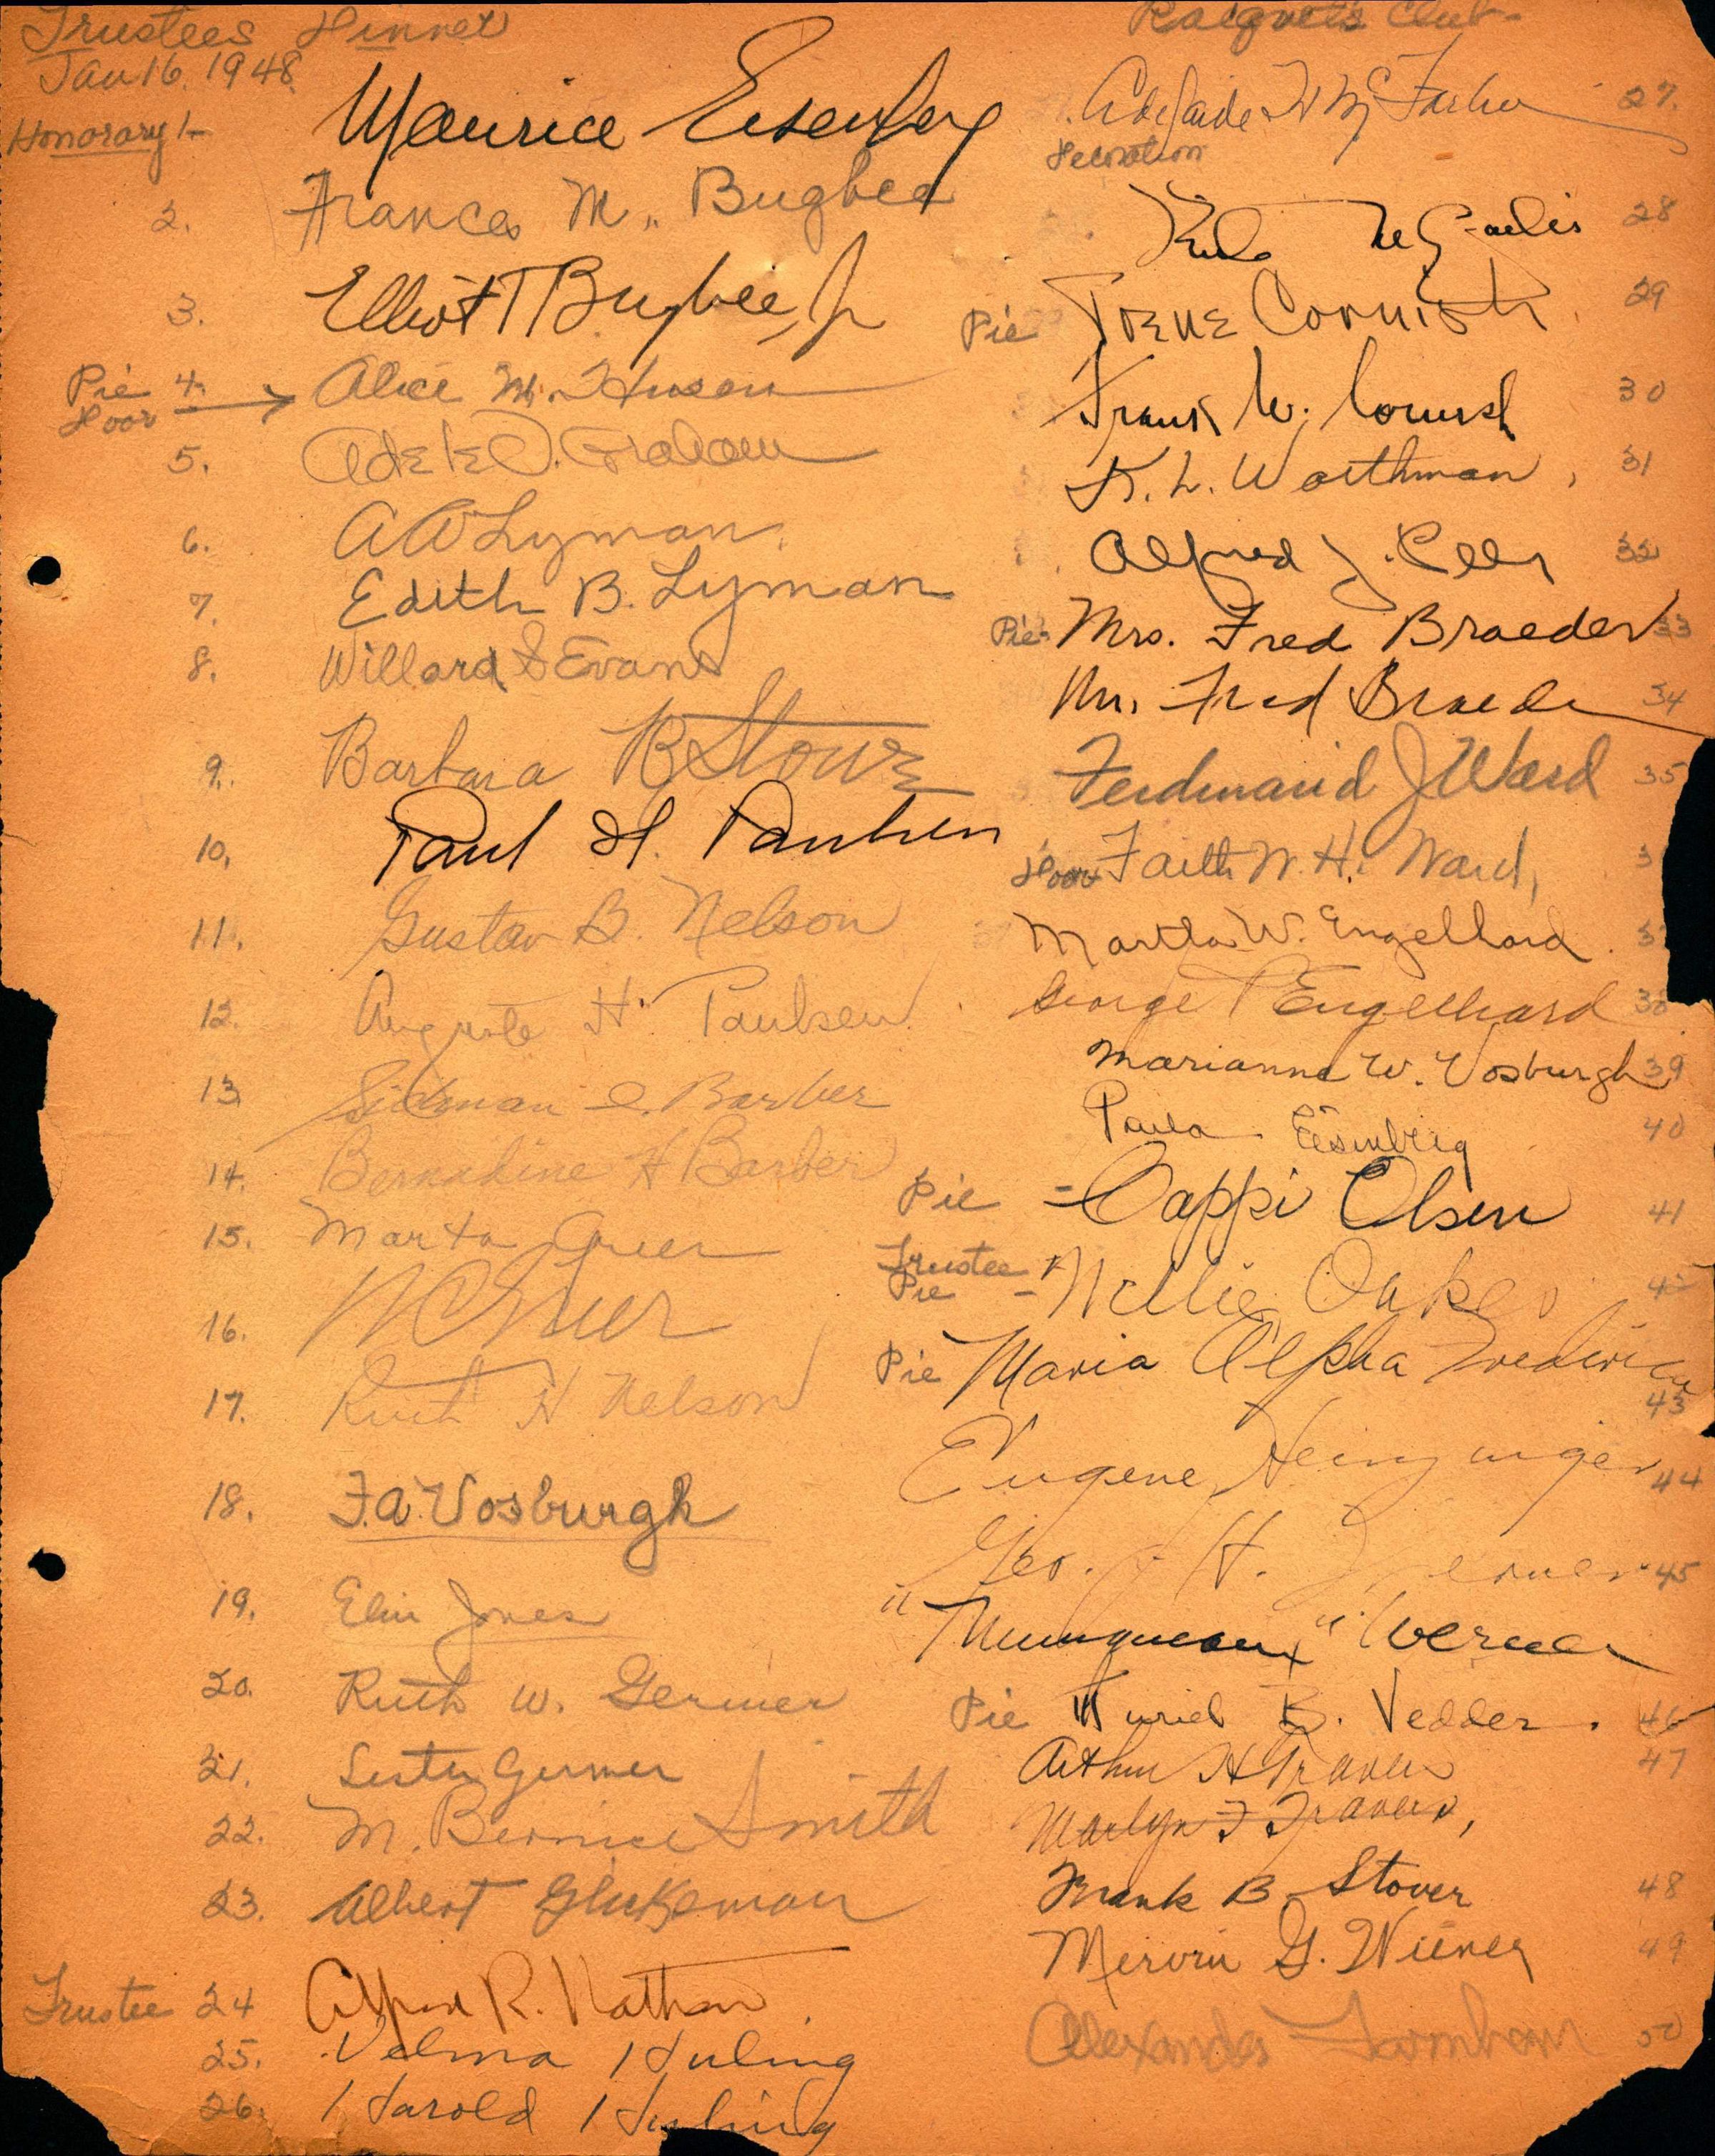 Trustees Dinner
Jan 16. 1948
Honorary 1- Maurice Eisenberg
2. Frances M. Bugbee
3. Elliot T Bugbee, Jr
Pie 4. Alice M.
Door
5. Adele D. Graham
6. A W Lyman.
7. Edith B. Lyman
8. Willard S Evans
9. Barbara R Stowe
10. Paul H. Paulsen
11. Gustav B. Nelson
12. Auguste H. Paulsen
13 Sidman I. Barber
14. Bernadine H Barber
15. Marta Greer
16.
17. Ruth H Nelson
18. F.A. Vosburgh
19. Elin Jones
20. Ruth W. Germer
21. Lester Germer
22. M. Bernice Smith
23. Albert Gluckman
Trustee 24 Alfred R. Nathan
25. Velma Huling
26. Harold Huling
Racquets Club-
Adelaide 27.
Decoration
28
Pie Irene Cornish 29
Frank W. Cornish 30
K. L. Worthman, 31
Alfred J. 32
Pie- Mrs. Fred Braeder 33
Mr. Fred Braeder 34
Ferdinand J Ward 35
Door Faith W. H. Ward,
Martha W. Engelhard.
George P Engelhard 38
Marianna W. Vosburgh 39
Paula Eisenberg 40
Pie - Cappi Olsen 41
Trustee
Pie - Nellie Oakes 42
Pie Maria Alpha Frederica
43
Eugene 44
Geo. H. Werner 45
" " Werner
Pie Muriel B. Vedder. 46
Arthur H Travers 47
Marlyn F Travers,
Frank B. Stover 48
Mervin G. Wiener 49
Alexander Farnham 50